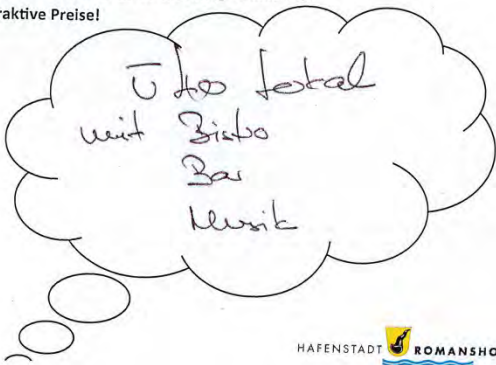 raktive Preise!
Ü40 Lokal
mit Bistro
Bar
Musik
HAFENSTADT ROMANSHO